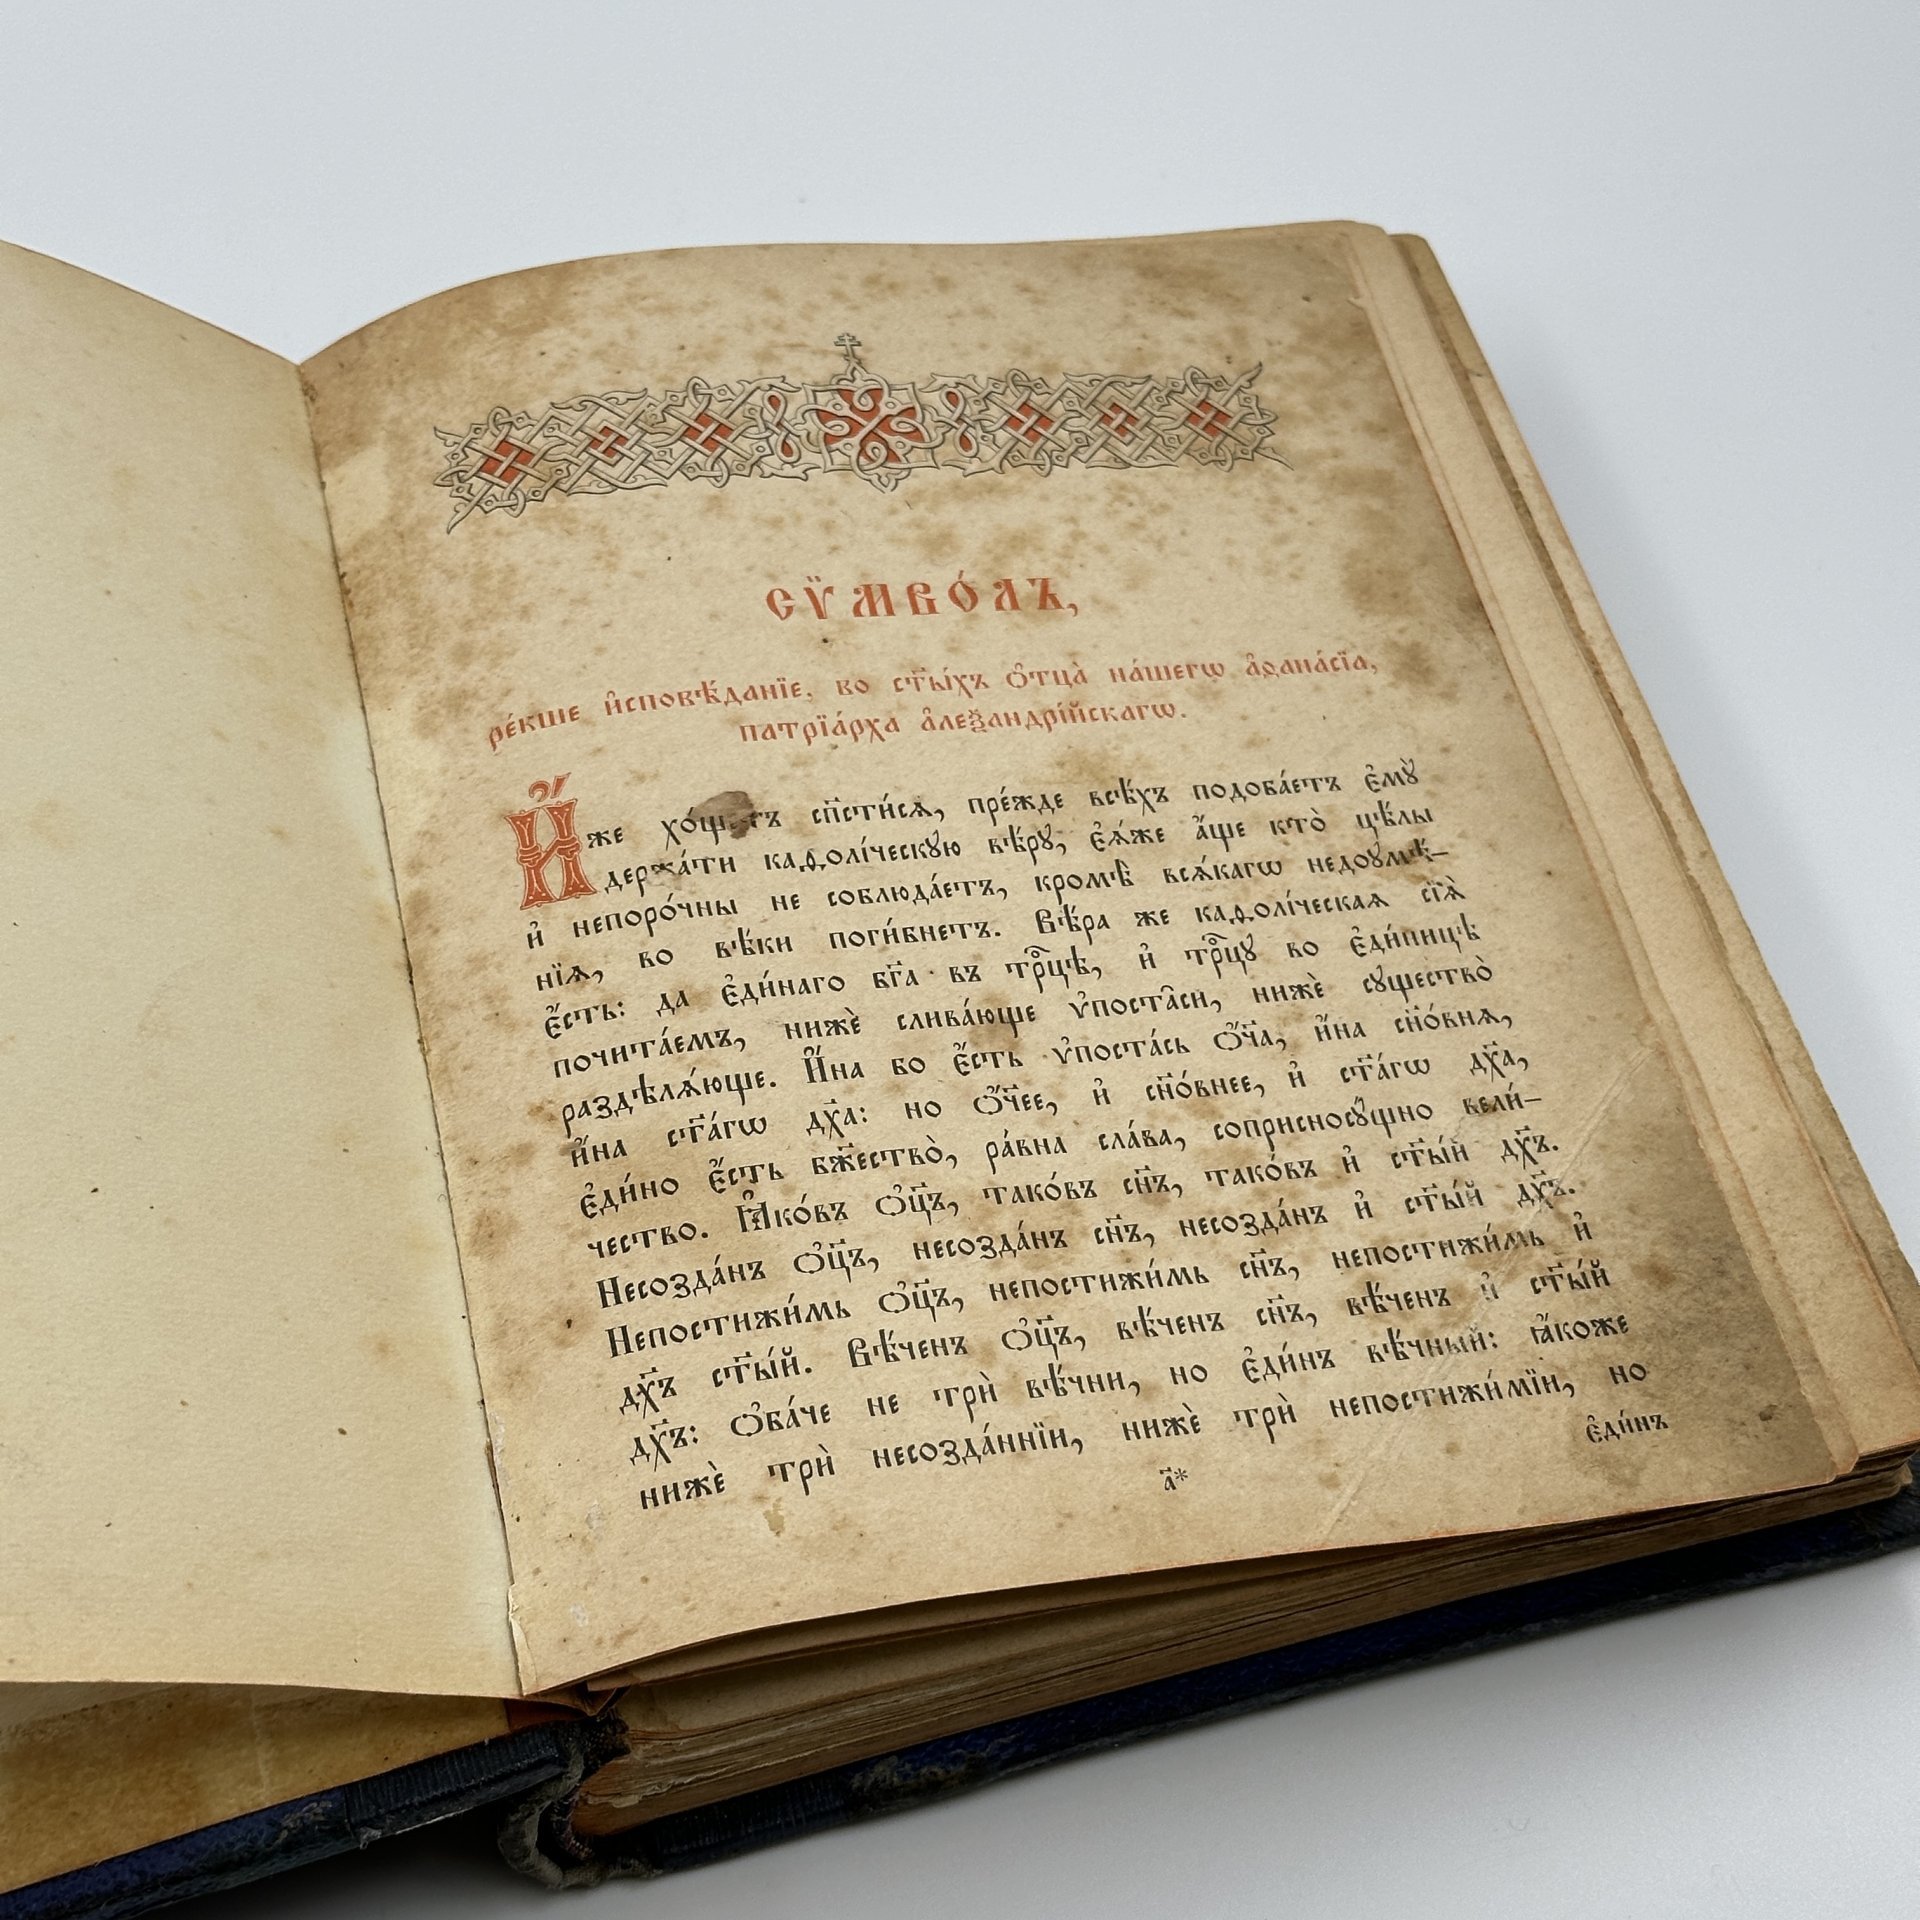 СѴ́МВО́ЛЪ,
ре́кше и҆сповѣ́данїе, во ст҃ы́хъ ѻ҆тца̀ на́шегѡ а҆ѳана́сїа,
патрїа́рха а҆леѯандрі́йскагѡ.
И҆́же хо́щетъ сп҃сти́сѧ, пре́жде всѣ́хъ подоба́етъ є҆мꙋ̀
держа́ти каѳоли́ческꙋю вѣ́рꙋ, є҆ѧ́же а҆́ще кто̀ цѣ́лы
и҆ непоро́чны не соблюда́етъ, кромѣ̀ всѧ́кагѡ недоꙋмѣ́-
нїѧ, во вѣ́ки поги́бнетъ. Вѣ́ра же каѳолі́ческаѧ сїѧ̀
є҆́сть: да є҆ди́наго бг҃а въ трⷪ҇цѣ, и҆ трⷪ҇цꙋ во є҆ди́ницѣ
почита́емъ, нижѐ слива́юще ѵ҆поста̑си, нижѐ сꙋщество̀
раздѣлѧ́юще. И҆́на бо є҆́сть ѵ҆поста́сь ѻ҆́ч҃а, и҆́на сн҃о́внѧ,
и҆́на ст҃а́гѡ дх҃а: но ѻ҆́ч҃ее, и҆ сн҃о́внее, и҆ ст҃а́гѡ дх҃а,
є҆ди́но є҆́сть бж҃ество̀, ра́вна сла́ва, соприсносꙋ́щно вели́-
чество. Ꙗ҆ко́въ ѻ҆ц҃ъ, тако́въ сн҃ъ, тако́въ и҆ ст҃ы́й дх҃ъ.
Несозда́нъ ѻ҆ц҃ъ, несозда́нъ сн҃ъ, несозда́нъ и҆ ст҃ы́й дх҃ъ.
Непостижи́мь ѻ҆ц҃ъ, непостижи́мь сн҃ъ, непостижи́мь и҆
дх҃ъ ст҃ы́й. Вѣ́ченъ ѻ҆ц҃ъ, вѣ́ченъ сн҃ъ, вѣ́ченъ и҆ ст҃ы́й
дх҃ъ: ѻ҆ба́че не трѝ вѣ́чни, но є҆ди́нъ вѣ́чный: ꙗ҆́коже
нижѐ трѝ несозда́ннїи, нижѐ трѝ непостижи́мїи, но
є҆ди́нъ
а҃*